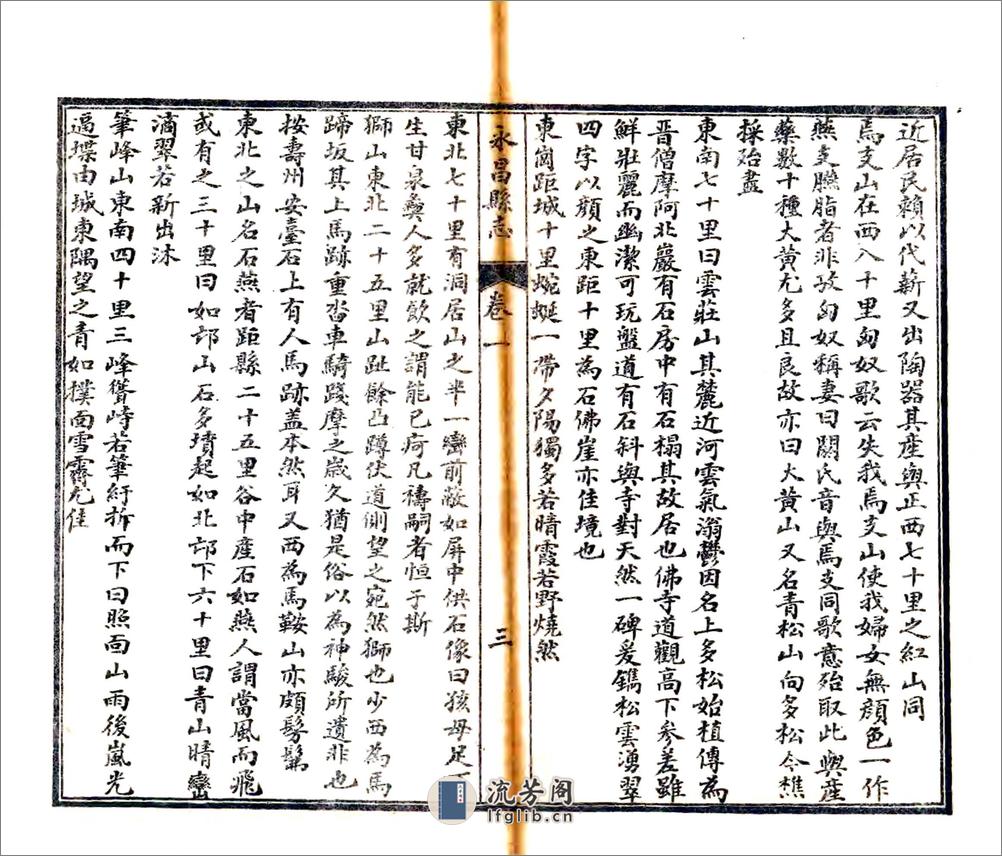 近居民賴以代薪又出陶器其產與正西七十里之紅山同
焉支山在西八十里匈奴歌云失我焉支山使我婦女無顏色一作
燕支臙脂者非攷匈奴稱妻曰閼氏音與焉支同歌意殆取此與產
藥數十種大黃尤多且良故亦曰大黃山又名青松山向多松今樵
採殆盡
東南七十里曰雲莊山其麓近河雲氣滃鬱因名上多松始植傳為
晉僧摩阿北巖有石房中有石榻其故居也佛寺道觀高下參差雖
鮮壯麗而幽潔可玩盤道有石斜與寺對天然一碑爰鐫松雲湧翠
四字以顏之東距十里為石佛崖亦佳境也
東崗距城十里蜿蜒一帶夕陽獨多若晴霞若野燒然
永昌縣志
卷一
三
東北七十里有洞居山之半一巒前敝如屏中供石像曰孩母足下
生甘泉彝人多就飲之謂能已疴凡禱嗣者恒于斯
獅山東北二十五里山趾餘凸蹲伏道側望之宛然獅也少西為馬
蹄坂其上馬跡重沓車騎踐摩之歲久猶是俗以為神駿所遺非也
按壽州安臺石上有人馬跡盖本然耳又西為馬鞍山亦頗髣髴
東北之山名石燕者距縣二十五里谷中產石如燕人謂當風而飛
或有之三十里曰如邙山石多墳起如北邙下六十里曰青山晴巒
滴翠若新出沐
筆峰山東南四十里三峰聳峙若筆紆折而下曰照面山雨後嵐光
逼堞由城東隅望之青如撲面雪霽尤佳
流芳阁
lfglib.cn